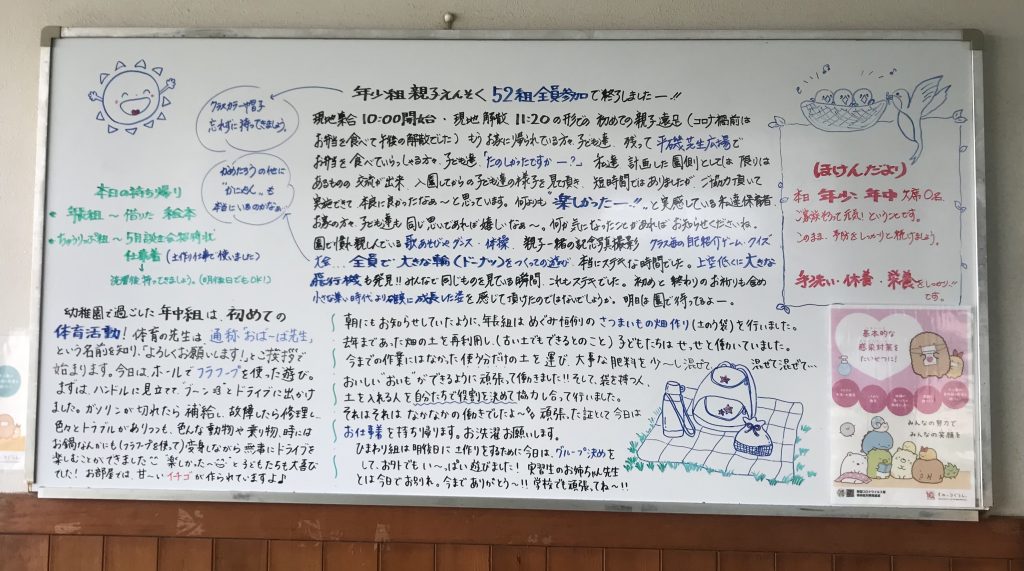 年少組 親子えんそく 52組全員参加で終了しましたー!!
クラスカラー帽子
忘れずに持ってきましょう。
現地集合 10:00開始・現地解散 11:20の形での 初めての親子遠足(コロナ禍前は
お弁当を食べて 午後の解散でした) もうお家に帰られている方や子ども達、残って 平磯芝生広場で
お弁当を食べていらっしゃる方々、子ども達 "たのしかったですかー?" 私達 計画した園側としては 限りは
あるものの 交流が出来、入園してからの子ども達の様子を見て頂き、短時間ではありましたが、ご協力頂いて
実施できて 本当に良かったなぁ〜と思っています。何よりも "楽しかったー!!" と実感している私達 保育者
お家の方々、子ども達も 同じ思いであれば嬉しいなぁ〜。何か気になったことがあれば お知らせくださいね。
園で慣れ親しんでいる 歌あそびやダンス・体操、親子一緒の記念写真撮影
大会... 全員で 大きな輪(ドーナツ)をつくっての遊び 本当にステキな時間でした。上空低くに 大きな
飛行機も発見!! みんなで 同じものを見ている瞬間 これもステキでした。初めと 終わりのお祈りも含め
小さな集い時代より確実に成長した姿を感じて頂けたのではないでしょうか。明日は園で待ってるよー。
本日の持ち帰り
・年長組 〜 借りた 絵本
・ちゅうりっぷ組 〜 5月誕生会招待状
仕事着 (土作り仕事で使いました)
洗濯後 持ってきましょう。
ほけんだより
本日 年少、年中 欠席0名
このまま、予防をしっかりと続けましょう。
手洗い・休養・栄養をしっかり!!
です。
幼稚園で過ごした年中組は、初めての
体育活動! 体育の先生は 通称"おばーば先生"
という名前を知り、「よろしくお願いします!」とご挨拶で
始まります。今日は、ホールで フラフープを使った遊び。
まずは、ハンドルに見立てて ブーンとドライブに出かけ
ました。ガソリンが切れたら 補給し、故障したら修理し
色々とトラブルがありつつも、色んな動物や乗り物、時には
お鍋なんかにも(フラフープを使って)変身しながら 無事にドライブを
楽しむことができました 楽しかった〜 と子どもたちも大喜び
でした! お部屋では、甘〜いイチゴが作られていますよ♪
朝にもお知らせしていたように、年長組は めぐみ恒例の さつまいもの畑作り(土のう袋)を行いました。
去年まであった畑の土を再利用し、(古い土でもできるとのこと) 子どもたちは せっせと働いていました。
今までの作業にはなかった使う分だけの土を 運び、大事な肥料を 少〜し混ぜて... 混ぜて混ぜて...
おいしい"おいも"ができるように頑張って働きました!! そして、袋を持つ人、
土を入れる人と自分たちで役割を決めて協力し合って行いました。
それはそれは なかなかの働きでしたよ〜 頑張った証として 今日は
お仕事着 を持ち帰ります。お洗濯お願いします。
ひまわり組は明後日に 土作りをするために今日は、グループ決めを
して、お外でもい〜っぱい遊びました! 実習生のお姉ちゃん先生
とは今日でお別れ。今までありがとう〜!! 学校でも頑張ってね〜!!
基本的な
感染対策を
たいせつに!
みんなの努力で
みんなの笑顔を